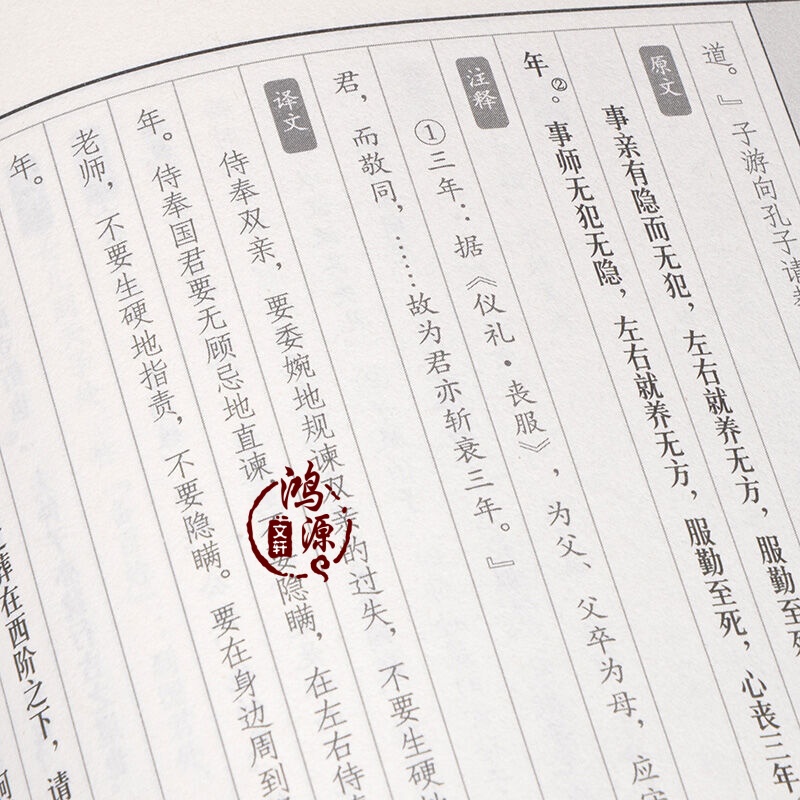 道。』子游向孔子请
原文
事亲有隐而无犯，左右就养无方，服勤至死
年②。事师无犯无隐，左右就养无方，服勤至死，心丧三年
注释
①三年：据《仪礼·丧服》，为父、父卒为母，应
君，而敬同，……故为君亦斩衰三年。』
译文
侍奉双亲，要委婉地规谏双亲的过失，不要生硬
年。侍奉国君要无顾忌地直谏，不要隐瞒，在左右侍
老师，不要生硬地指责，不要隐瞒。要在身边周到
年。
葬在西阶之下，请
鸿源
文轩